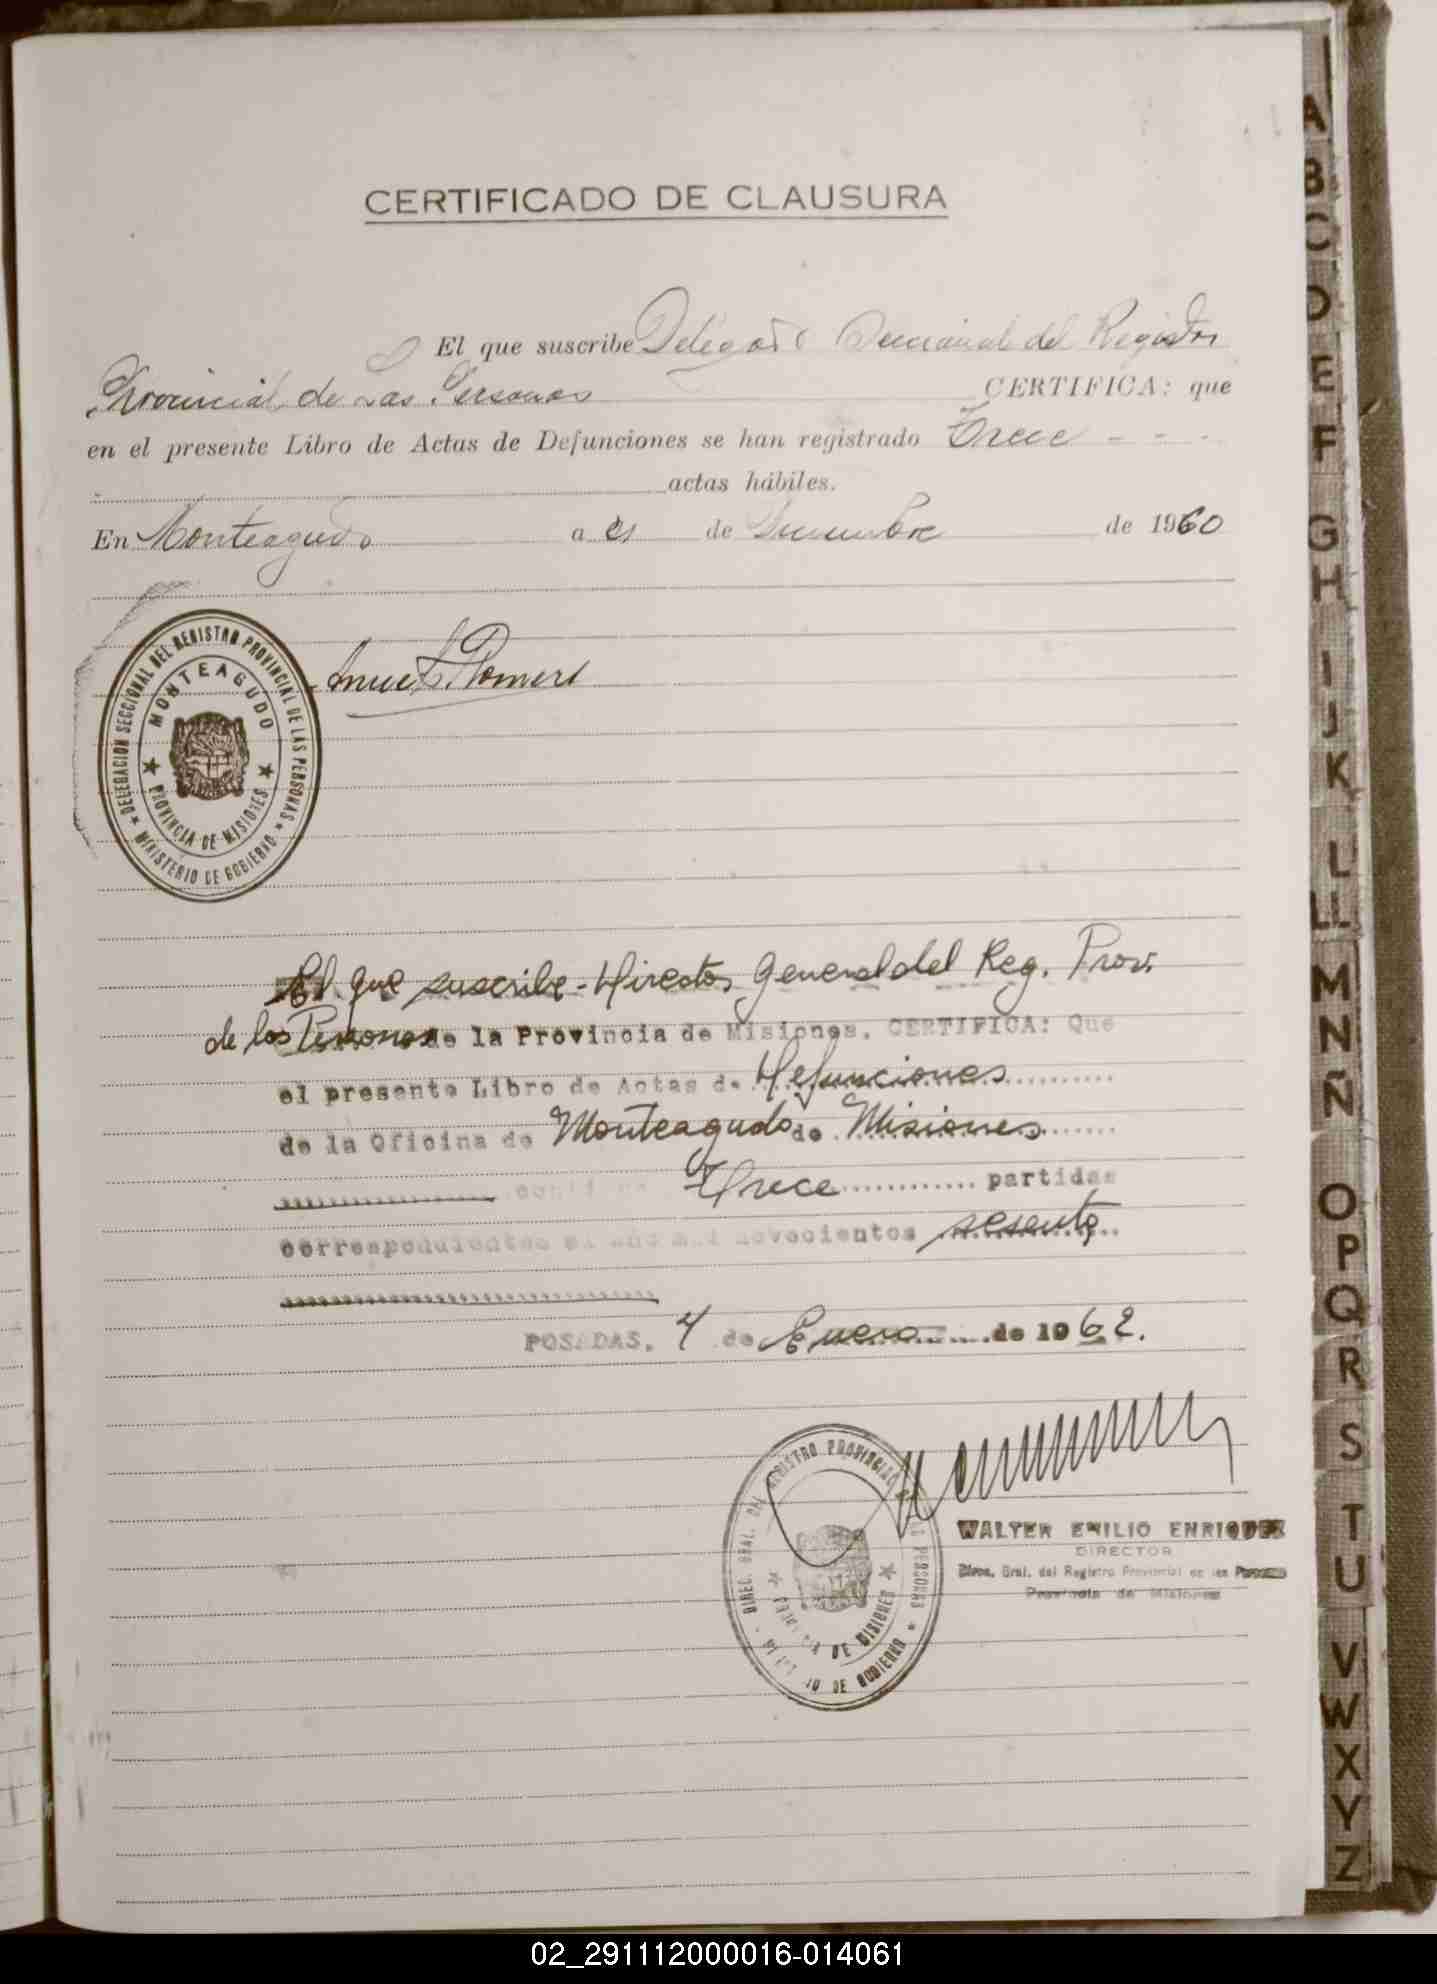 CERTIFICADO DE CLAUSURA
El que suscribe Delegado Seccional del Registro
Provincial de Las Personas CERTIFICA: que
en el presente Libro de Actas de Defunciones se han registrado Trece - - -
actas hábiles.
En Monteagudo a de de 1960
DELEGACION SECCIONAL DEL REGISTRO PROVINCIAL DE LAS PERSONAS
MONTEAGUDO
PROVINCIA DE MISIONES
MINISTERIO DE GOBIERNO
Romero
El que suscribe - Director General del Reg. Prov.
de las Personas de la Provincia de Misiones. CERTIFICA: Que
el presente Libro de Actas de Defunciones
de la Oficina de Monteagudo de Misiones
contiene Trece partidas
correspondientes al año mil novecientos sesenta
POSADAS, 4 de Enero de 1962.
DIREC. GRAL. DEL REGISTRO PROVINCIAL DE LAS PERSONAS
DE MISIONES
DE GOBIERNO
WALTER EMILIO ENRIQUEZ
DIRECTOR
Direc. Gral. del Registro Provincial de las Personas
Provincia de Misiones
A
B
C
D
E
F
G
H
I
J
K
L
LL
M
N
Ñ
O
P
Q
R
S
T
U
V
W
X
Y
Z
02_291112000016-014061